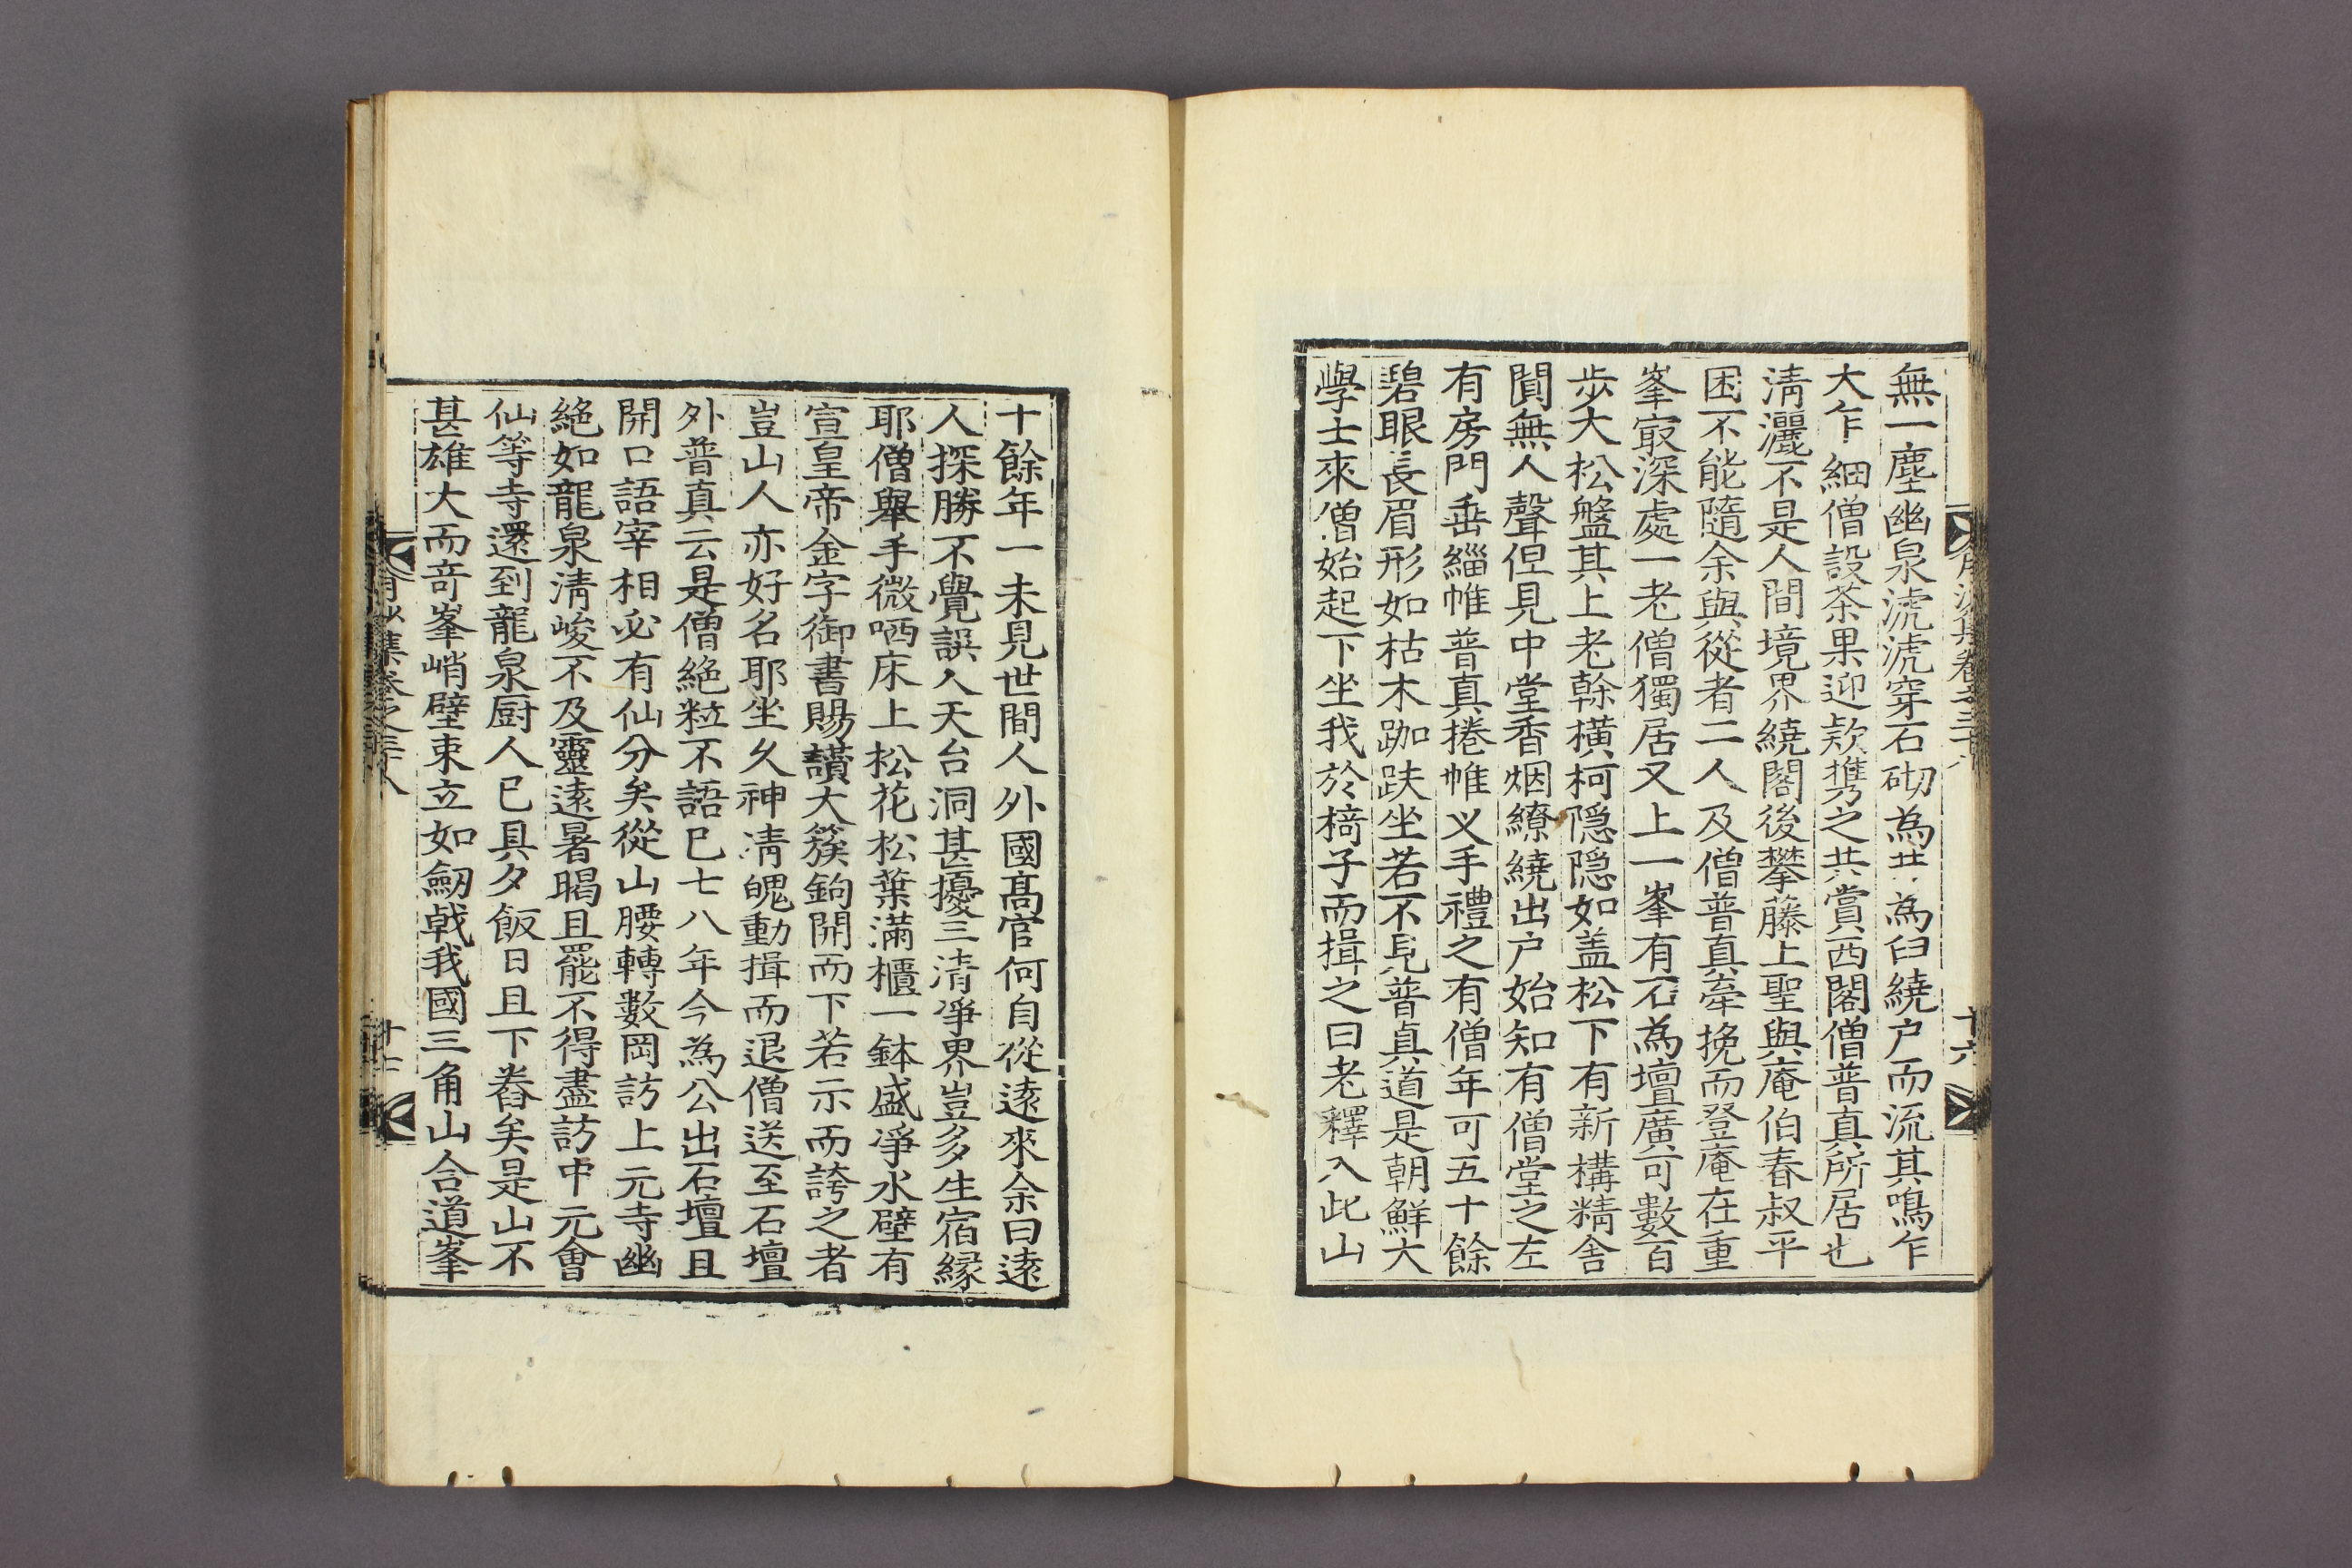 無一塵幽泉淲淲穿石砌為井為臼繞户而流其鳴乍
大乍細僧設茶果迎欵携之共賞西閣僧普真所居也
淸灑不是人間境界繞閣後攀藤上聖與庵伯春叔平
困不能隨余與從者二人及僧普真牽挽而登庵在重
峯㝡深處一老僧獨居又上一峯有石為壇廣可數百
步大松盤其上老榦橫柯隠隠如盖松下有新構精舎
閴無人聲但見中堂香烟繚繞出户始知有僧堂之左
有房門垂緇帷普真捲帷乂手禮之有僧年可五十餘
碧眼長眉形如枯木跏趺坐若不見普眞道是朝鮮大
學士來僧始起下坐我於椅子而揖之曰老釋入此山
十餘年一未見世間人外國髙官何自從逺來余曰逺
人探勝不覺誤入天台洞甚擾三清凈界豈多生宿縁
耶僧舉手微哂床上松花松葉滿櫃一鉢盛凈水壁有
宣皇帝金字御書賜讃大簇鉤開而下若示而誇之者
豈山人亦好名耶坐久神淸魄動揖而退僧送至石壇
外普真云是僧絶粒不語已七八年今為公出石壇且
開口語宰相必有仙分矣從山腰轉數岡訪上元寺幽
絶如龍泉淸峻不及靈逺暑暍且罷不得盡訪中元會
仙等寺還到龍泉厨人已具夕飯日且下舂矣是山不
甚雄大而竒峯峭壁束立如劒戟我國三角山合道峯
集卷之三十八